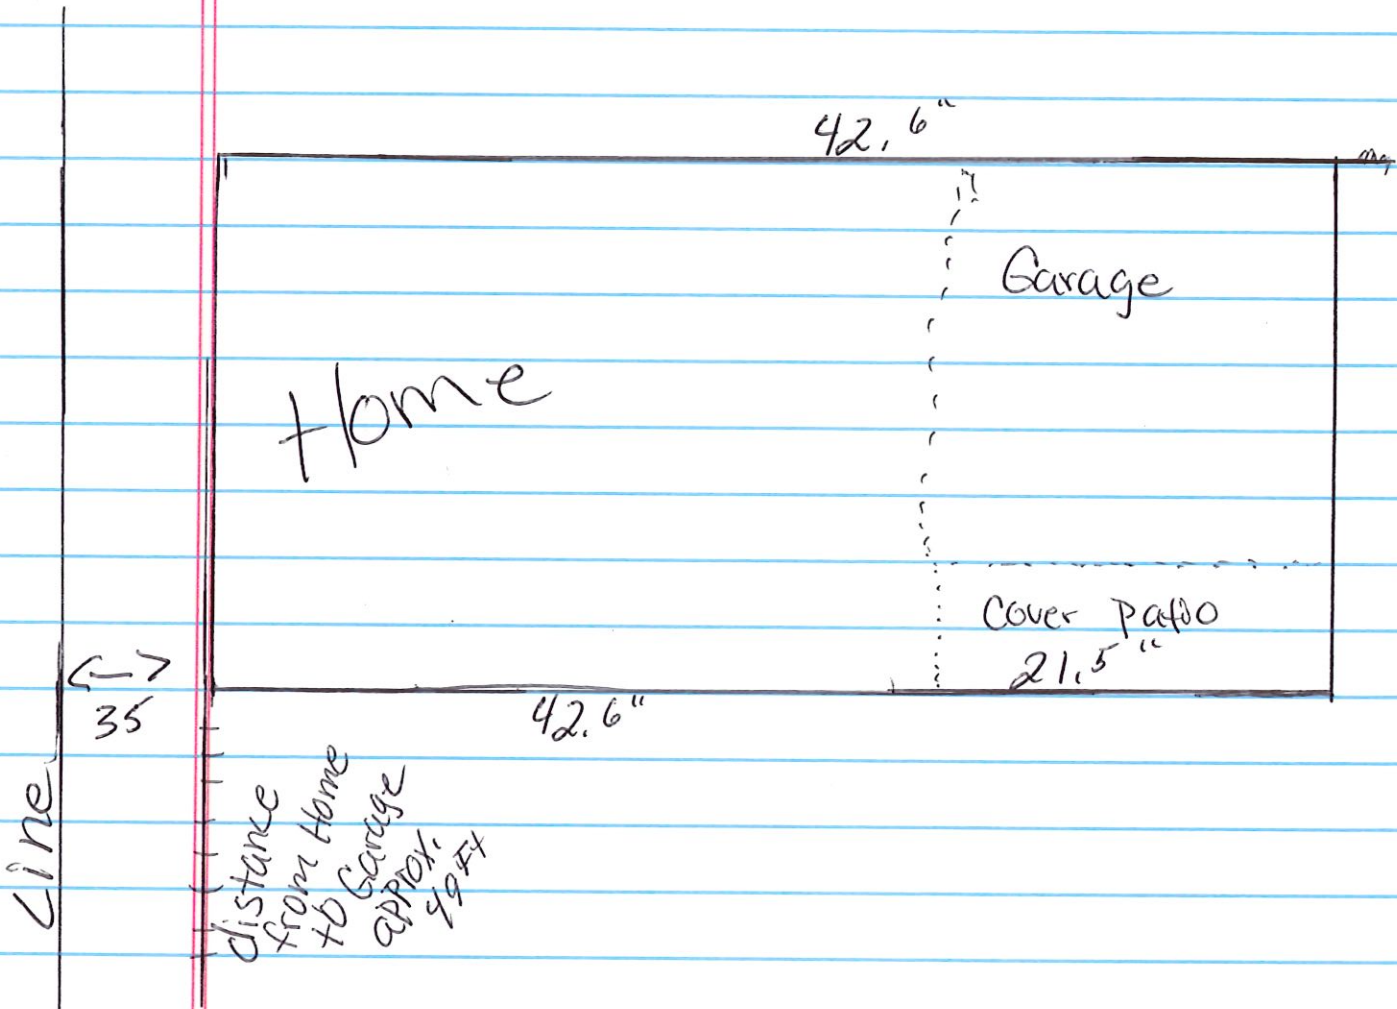 42.6"
Garage
Home
Cover Patio
21.5"
35
42.6"
Line
distance
from Home
to Garage
approx.
49 Ft